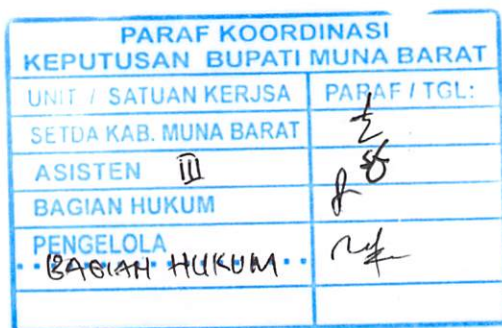 PARAF KOORDINASI
KEPUTUSAN BUPATI MUNA BARAT
UNIT / SATUAN KERJSA PARAF / TGL:
SETDA KAB. MUNA BARAT
ASISTEN III
BAGIAN HUKUM
PENGELOLA
BAGIAN HUKUM